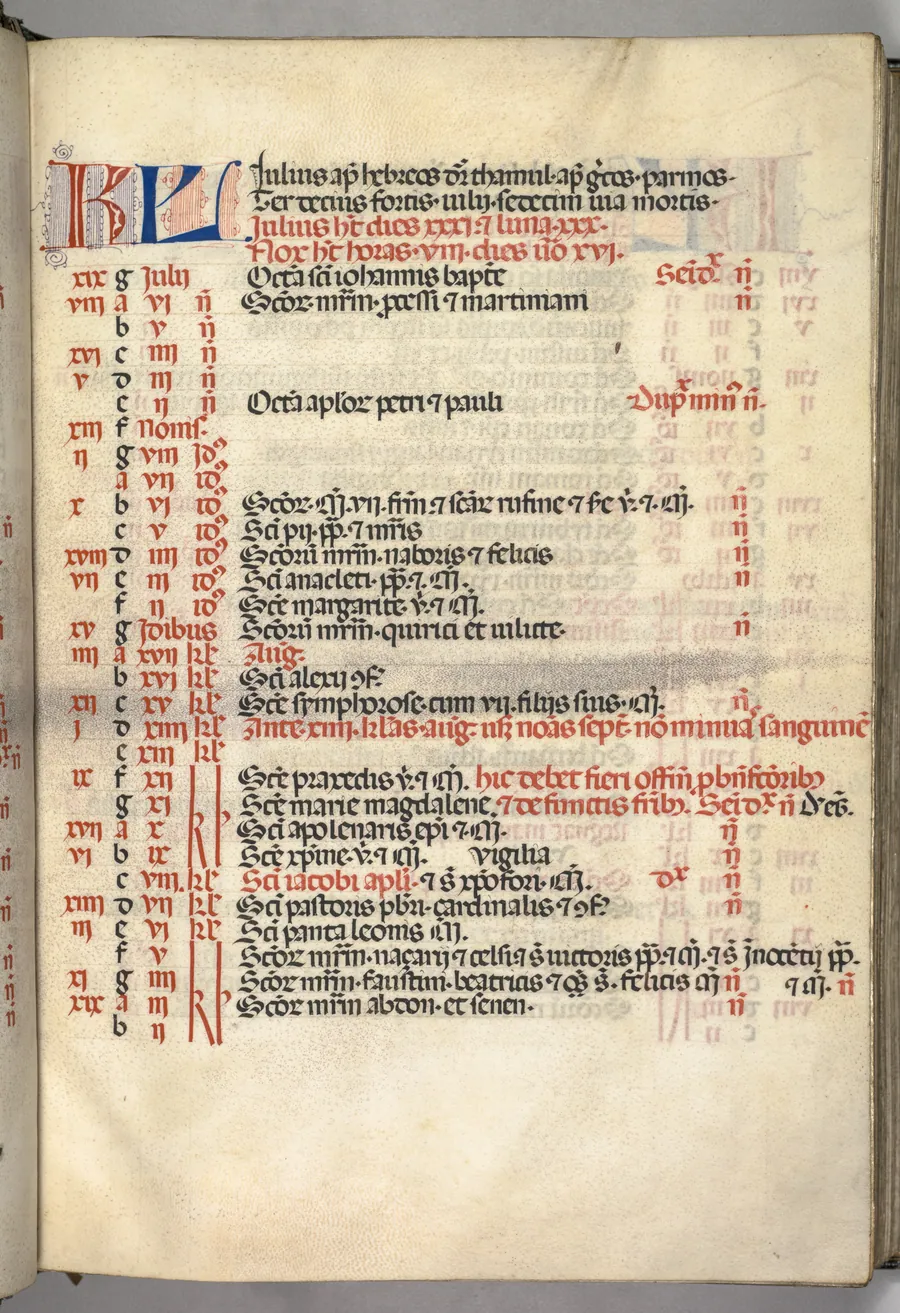 KL Iulius ap̄ hebreos dr̄ thamul·ap̄ gr̄cos·parmos·
Ter decius fortis·iulij·sedecim uia mortis·
Julius ht̄ dies xxxi ⁊ luna·xxx·
Nox ht̄ horas·viii·dies u̅o xvi·
xix g Julij Octā sc̄i iohannis bapt̄e Seīdx n̄
viii a vi n̄ Sc̄oꝝ mr̄m·ꝓcessi ⁊ martiniani n̄
b v n̄
xvi c iiii n̄
v d iii n̄
e ii n̄ Octā apl̄oꝝ petri ⁊ pauli Dupx min̄ n̄·
xiii f Nonis·
ii g viii Id⁹
a vii id⁹
x b vi id⁹ Sc̄oꝝ·m̄·vii·fr̄m ⁊ sc̄aꝝ rufine ⁊ v̄·⁊·m̄· n̄
c v id⁹ Sc̄i pij·pp̄·⁊ mr̄is n̄
xviii d iiii id⁹ Sc̄oꝝ mr̄m·naboris ⁊ felicis n̄
vii e iii id⁹ Sc̄i anacleti·pp̄·⁊·m̄· n̄
f ii id⁹ Sc̄e margarite·v̄·⁊ m̄·
xv g Idibus Sc̄oꝝ mr̄m·quirici et iulicte· n̄
iiii a xvii kl̄ Aug·
b xvi kl̄ Sc̄i alexij ꝯf̄
xii c xv kl̄ Sc̄e symphorose·cum vii·filijs suis·m̄· n̄
i d xiiii kl̄ Ante·xiiii·kl̄as·aug̅·usꝫ no̅as sept̄·no̅ minuat̄ sanguine̅
e xiii kl̄
ix f xii kl̄ Sc̄e praxedis v̄·⁊ m̄· hic debet fieri offm̄ ꝓ bn̄fc̄orib⁹
g xi Sc̄e marie magdalene· ⁊ defunctis fr̄ib⁹· Seīdx n̄
xvii a x Sc̄i apolenaris ep̄i ⁊·m̄· n̄
vi b ix Sc̄e xp̄ine·v̄·⁊ m̄· vigilia n̄
c viii·kl̄ Sc̄i iacobi apl̄i·⁊ s̄ xp̄ofori·m̄· dx n̄
xiiii d vii kl̄ Sc̄i pastoris pb̄ri·cardinalis ⁊ ꝯf̄ n̄
iii e vi kl̄ Sc̄i panta leonis m̄·
f v kl̄ Sc̄oꝝ mr̄m·naçarij ⁊ celsi ⁊ s̄ uictoris pp̄·⁊ m̄·⁊ s̄ Inoce̅tij pp̄·
xi g iiii Sc̄oꝝ mr̄m·faustini·beatricis ⁊ s̄·felicis m̄ n̄ ⁊ m̄· n̄
xix a iii Sc̄oꝝ mr̄m abdon·et senen· n̄
b ii